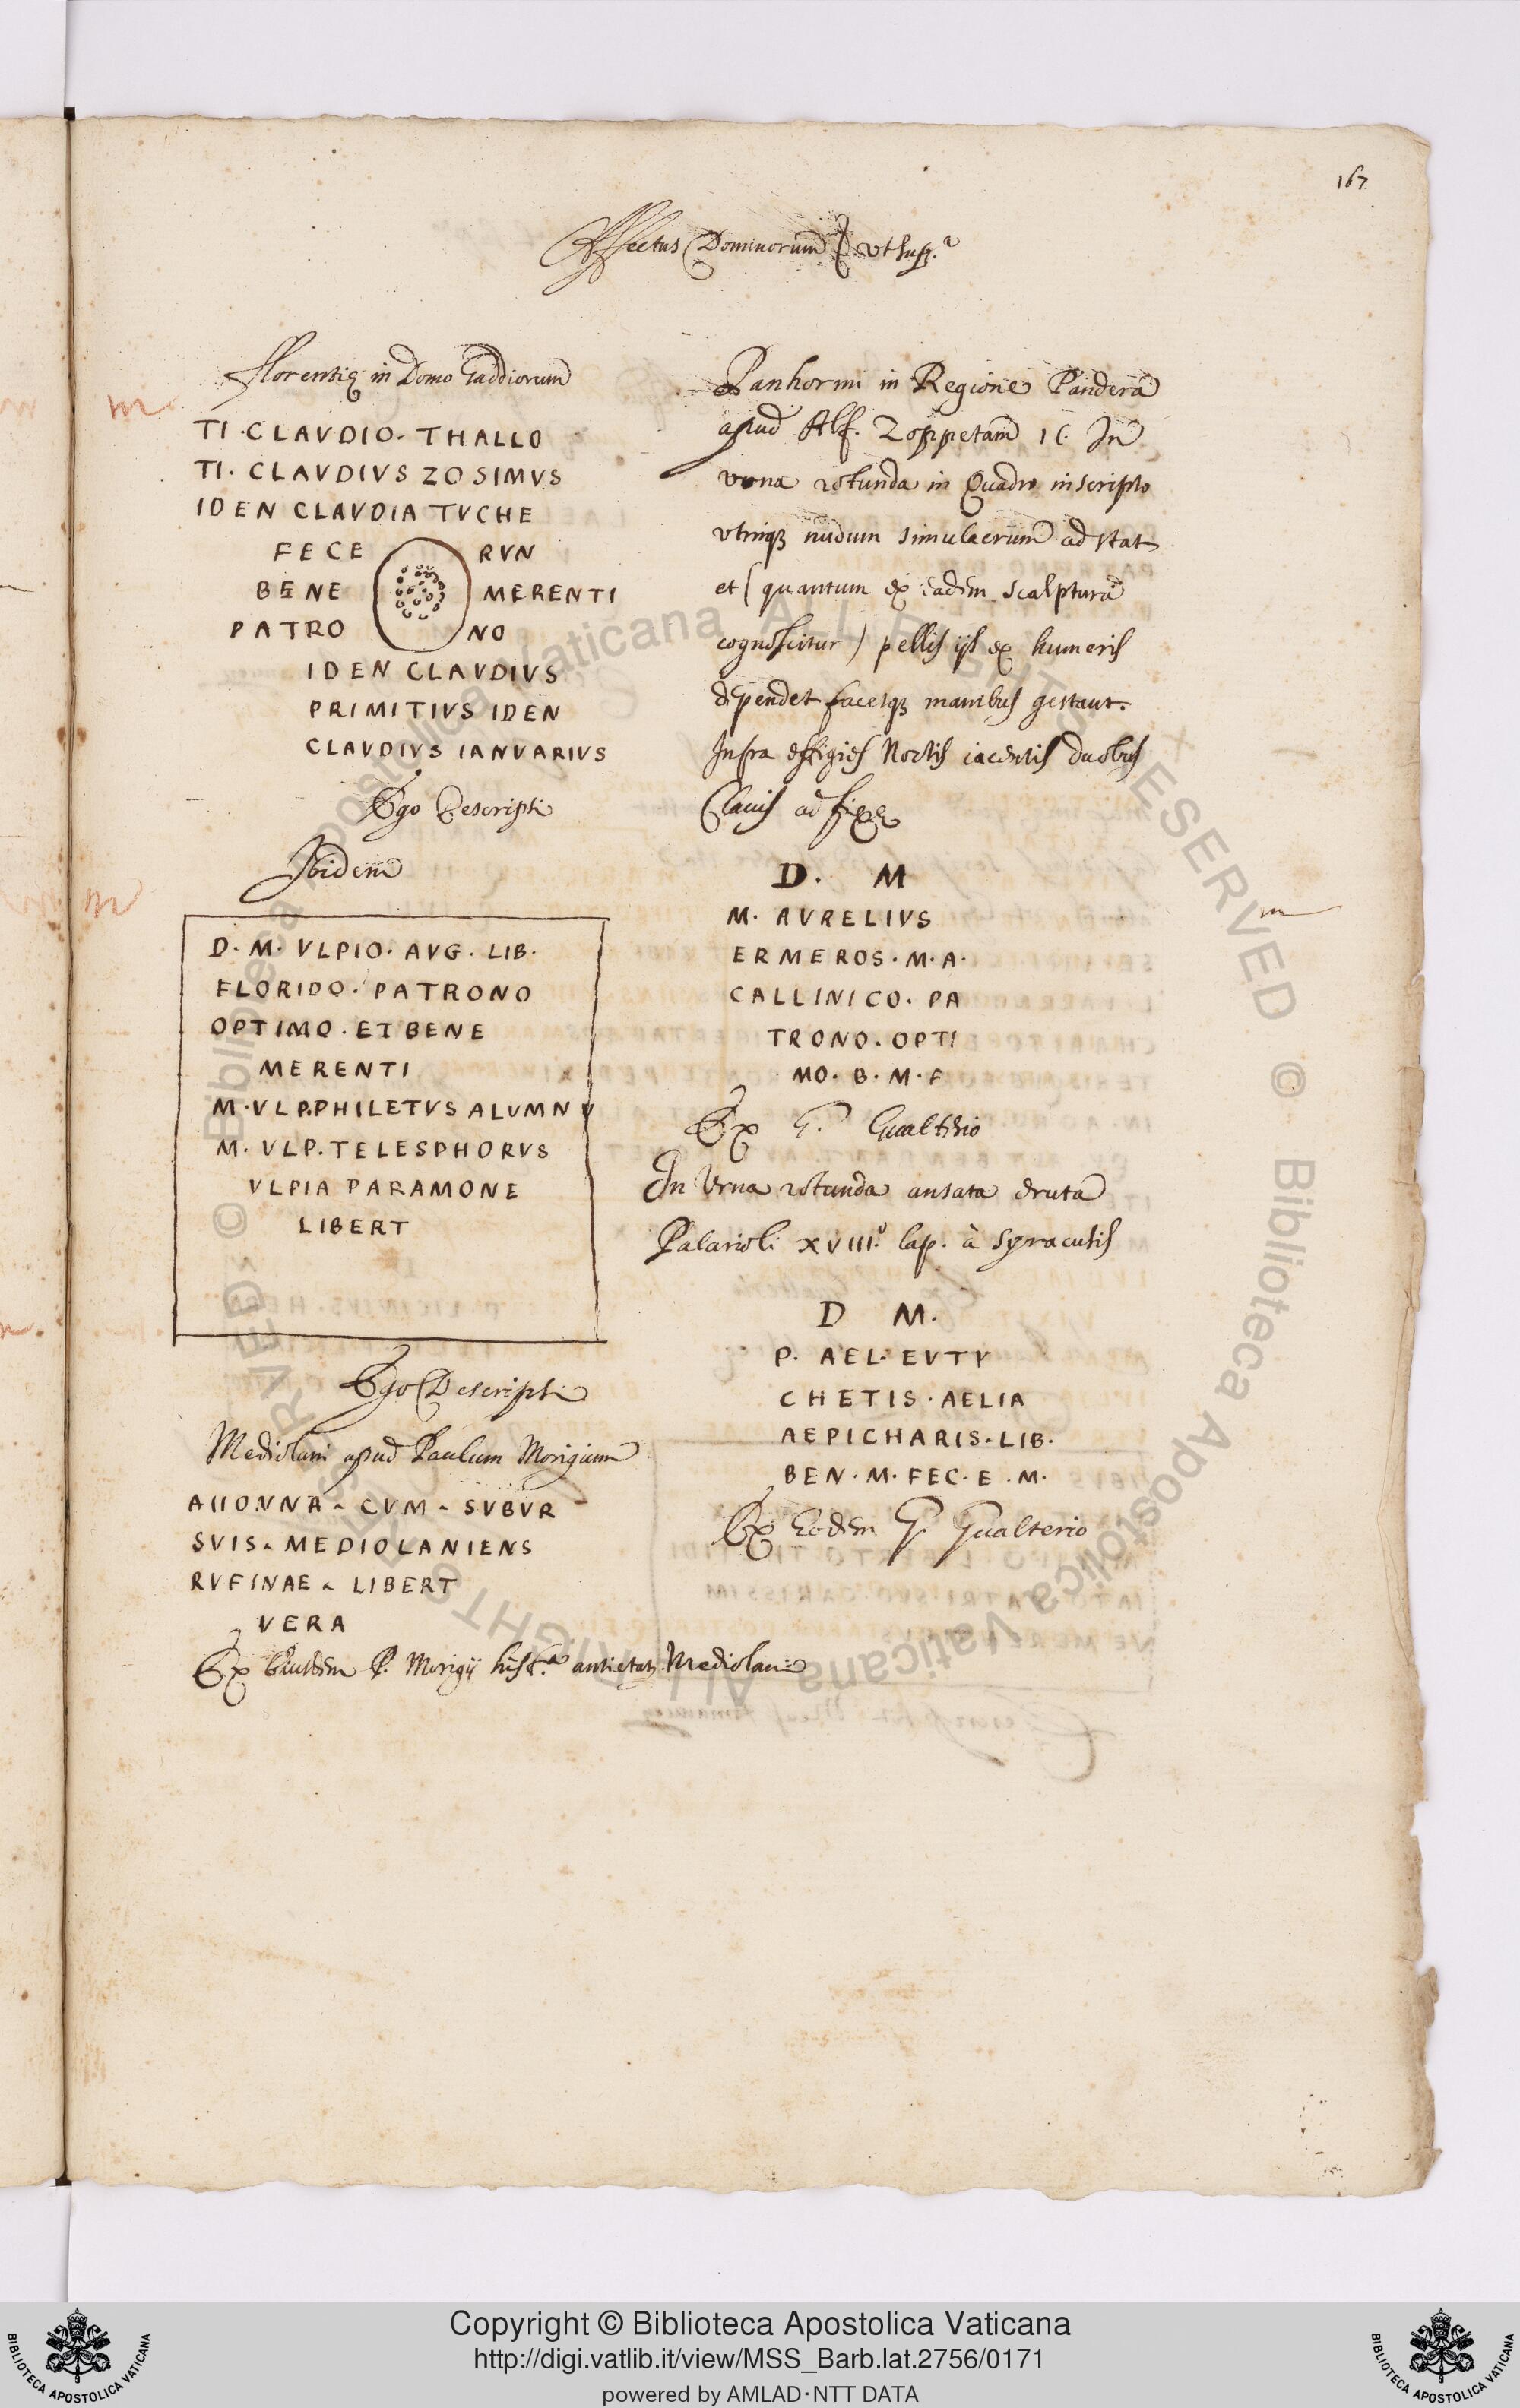 167
Affectus Dominorum ut sup.ª
Florentię in Domo Gaddiorum
TI · CLAVDIO · THALLO
TI · CLAVDIVS ZOSIMVS
IDEN CLAVDIA TVCHE
FECE RVN
BENE MERENTI
PATRO NO
IDEN CLAVDIVS
PRIMITIVS IDEN
CLAVDIVS IANVARIVS
Ego Descripsi
Ibidem
D · M · VLPIO · AVG · LIB ·
FLORIDO · PATRONO
OPTIMO · ET BENE
MERENTI
M · VLP.PHILETVS ALVMNV
M · VLP · TELESPHORVS
VLPIA PARAMONE
LIBERT
Ego Descripsi
Mediolani apud Paulum Morigium
AIIONNA · CVM · SVBVR
SVIS · MEDIOLANIENS
RVFINAE · LIBERT
VERA
Ex Eiusdem P. Morigij hist.ª antietat. Mediolani
Panhormi in Regione Pandera
apud Alf. Zoppetam IC. In
vrna rotunda in Quadro inscripto
utrinq; nudum simulacrum ad stat
et (quantum ex eadem scalptura
cognoscitur) pellis ijs ex humeris
dependet facesq; manibus gestant.
Infra effigies Noctis iacentis duobus
Clauis ad fixę
D · M
M · AVRELIVS
ERMEROS · M · A ·
CALLINICO · PA
TRONO · OPTI
MO · B · M · F
Ex G. Gualterio
In Vrna rotunda ansata eruta
Palarioli XVIII. lap. à Syracusis
D M ·
P · AEL · EVTY
CHETIS · AELIA
AEPICHARIS · LIB ·
BEN · M · FEC · E · M ·
Ex Eodem G. Gualterio
m
m
m
© Biblioteca Apostolica Vaticana ALL RIGHTS RESERVED
© Biblioteca Apostolica Vaticana ALL RIGHTS RESERVED
Copyright © Biblioteca Apostolica Vaticana
http://digi.vatlib.it/view/MSS_Barb.lat.2756/0171
powered by AMLAD·NTT DATA
BIBLIOTECA APOSTOLICA VATICANA
BIBLIOTECA APOSTOLICA VATICANA